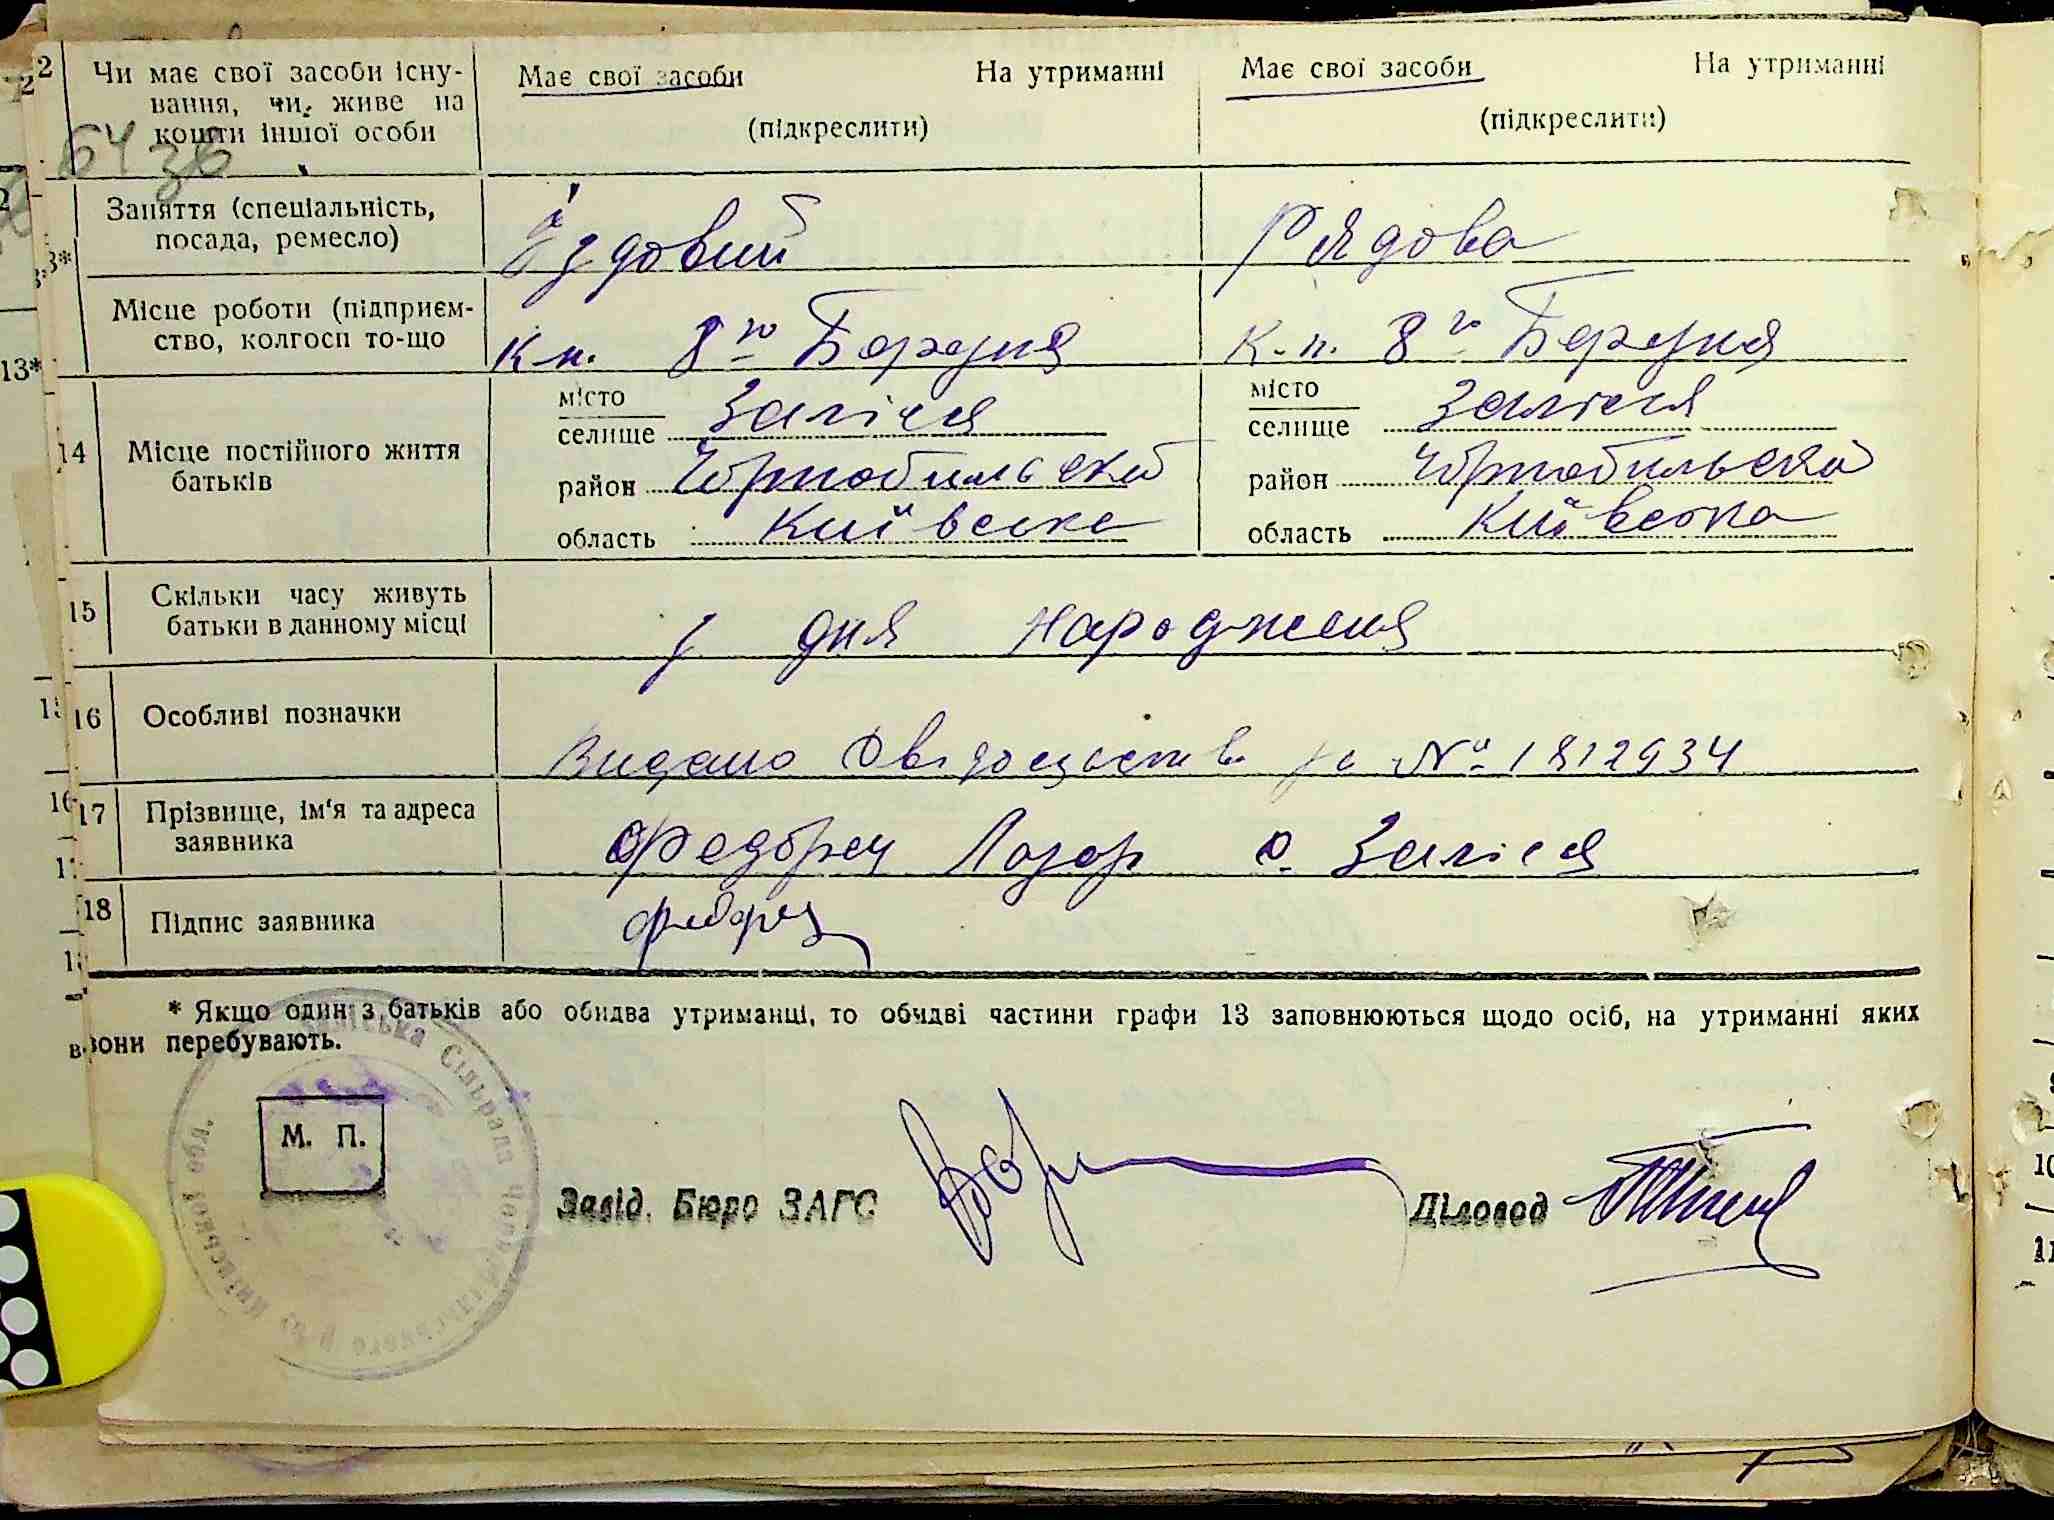 12
Чи має свої засоби існу-
вання, чи живе на
кошти іншої особи
Має свої засоби На утриманні
(підкреслити)
Має свої засоби На утриманні
(підкреслити)
6436
Заняття (спеціальність,
посада, ремесло)
Їздовий
Рядова
13*
Місце роботи (підприєм-
ство, колгосп то-що
К.п. 8го Березня
К.п. 8го Березня
14
Місце постійного життя
батьків
місто
селище Залісся
район Чорнобильский
область Київське
місто
селище Залісся
район Чорнобильский
область Київська
15
Скільки часу живуть
батьки в данному місці
з дня народження
16
Особливі позначки
Видано за № 1812934
17
Прізвище, ім'я та адреса
заявника
Лазар с. Залісся
18
Підпис заявника
* Якщо один з батьків або обидва утриманці, то обидві частини графи 13 заповнюються щодо осіб, на утриманні яких
вони перебувають.
Сільрада Чорнобильського р-ну Київської обл.
М. П.
Завід. Бюро ЗАГС
Діловод